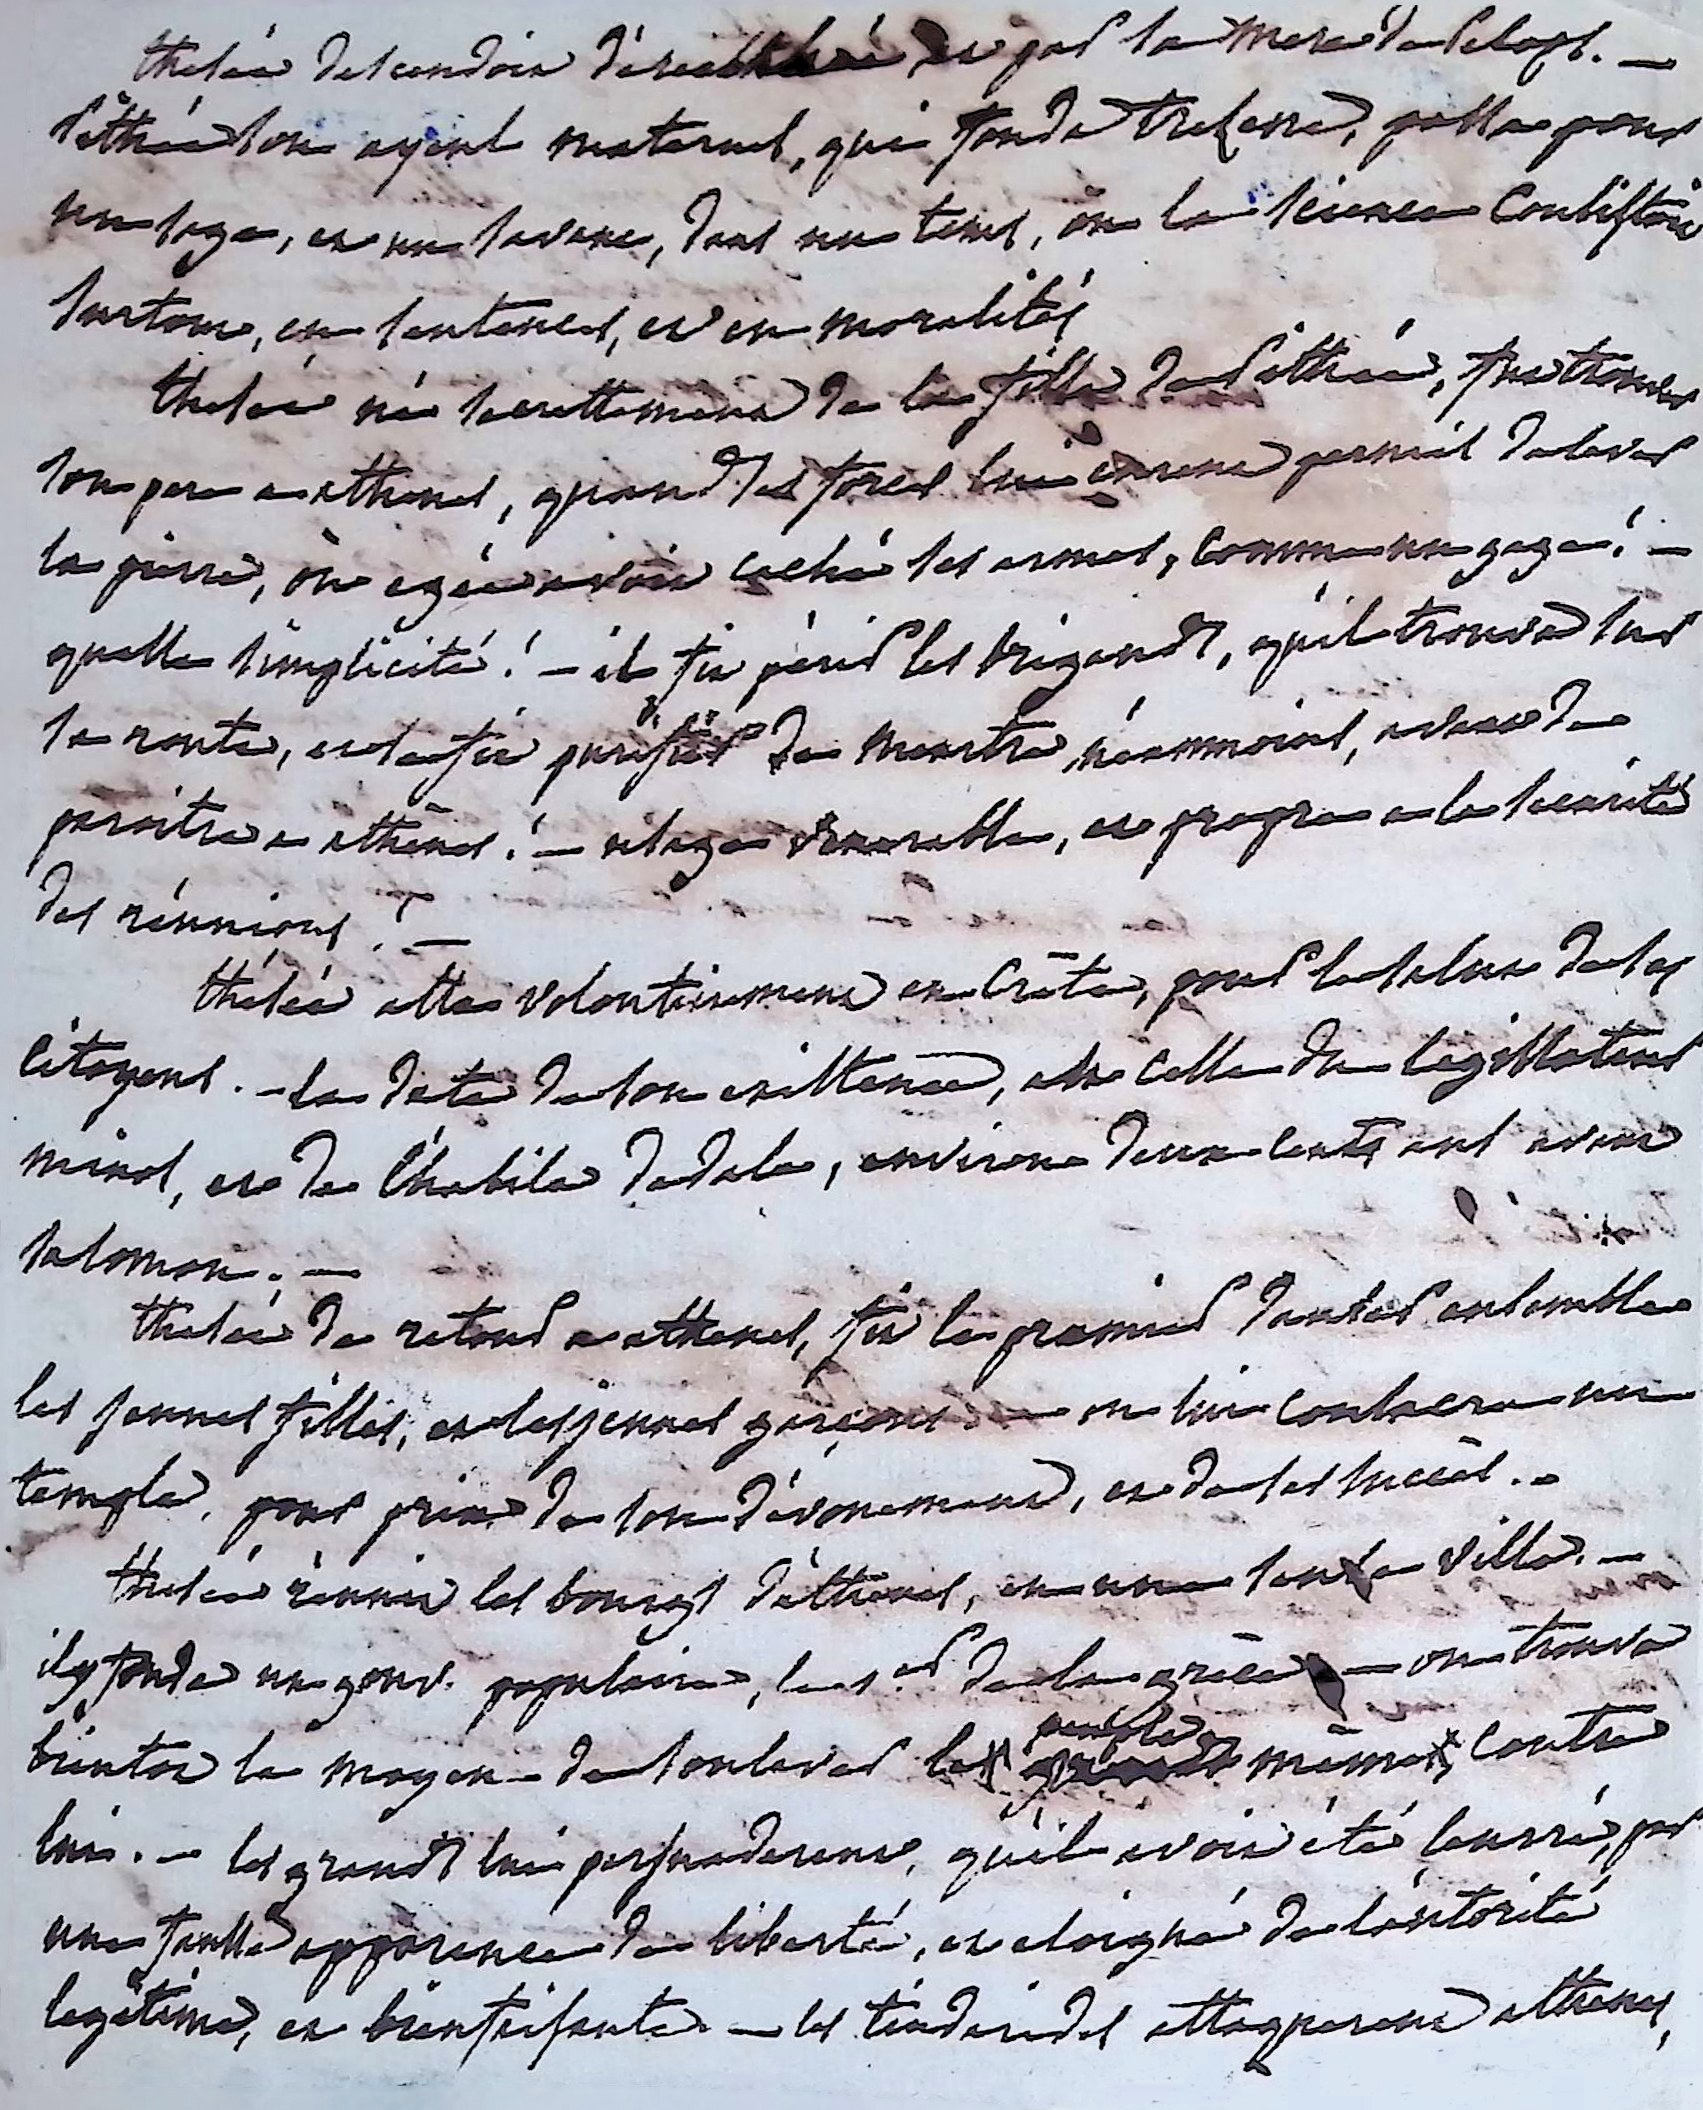 thesée descendoit d'erecthée et par sa mere de Pelops. —
Pithée son ayeul maternel, qui fonda Trezene, passa pour
un sage, et un savant, dans un tems, où la science consistoit
surtout, en sentences, et en moralités
thesée né secrettement de la fille de Pithée, fut trouver
son pere a athenes, quand ses forces lui eurent permis de lever
la pierre, où egée avoit caché ses armes, comme un gage ! —
quelle simplicité ! — il fit périr les brigands, qu'il trouva sur
sa route, et se fit purifier de meurtre, néanmoins, avant de
paroitre a athènes ! — usage venerable, et propre a la securité
des réunions ! —
thésée alla volontairement en Crète, pour le salut de ses
citoyens. — la date de son existence, est celle du legislateur
minos, et de l'habile dedale, environ deux cents ans avant
salomon. —
thesée de retour a athenes, fit le premier danser ensemble
les jeunes filles, et les jeunes garçons — on lui consacra un
temple, pour prix de son dévouement, et de ses succès. —
thesée réunit les bourgs d'athènes, en une seule ville. —
il y fonda un gouv. populaire, le 1.er de la grèce — on trouva
bientot le moyen de soulever le peuple même, contre
lui. — les grands lui persuaderent, qu'il avoit été leurré, par
une fausse apparence de liberté, et eloigné de l'autorité
legitime, et bienfaisante — les tindarides attaquerent athenes,